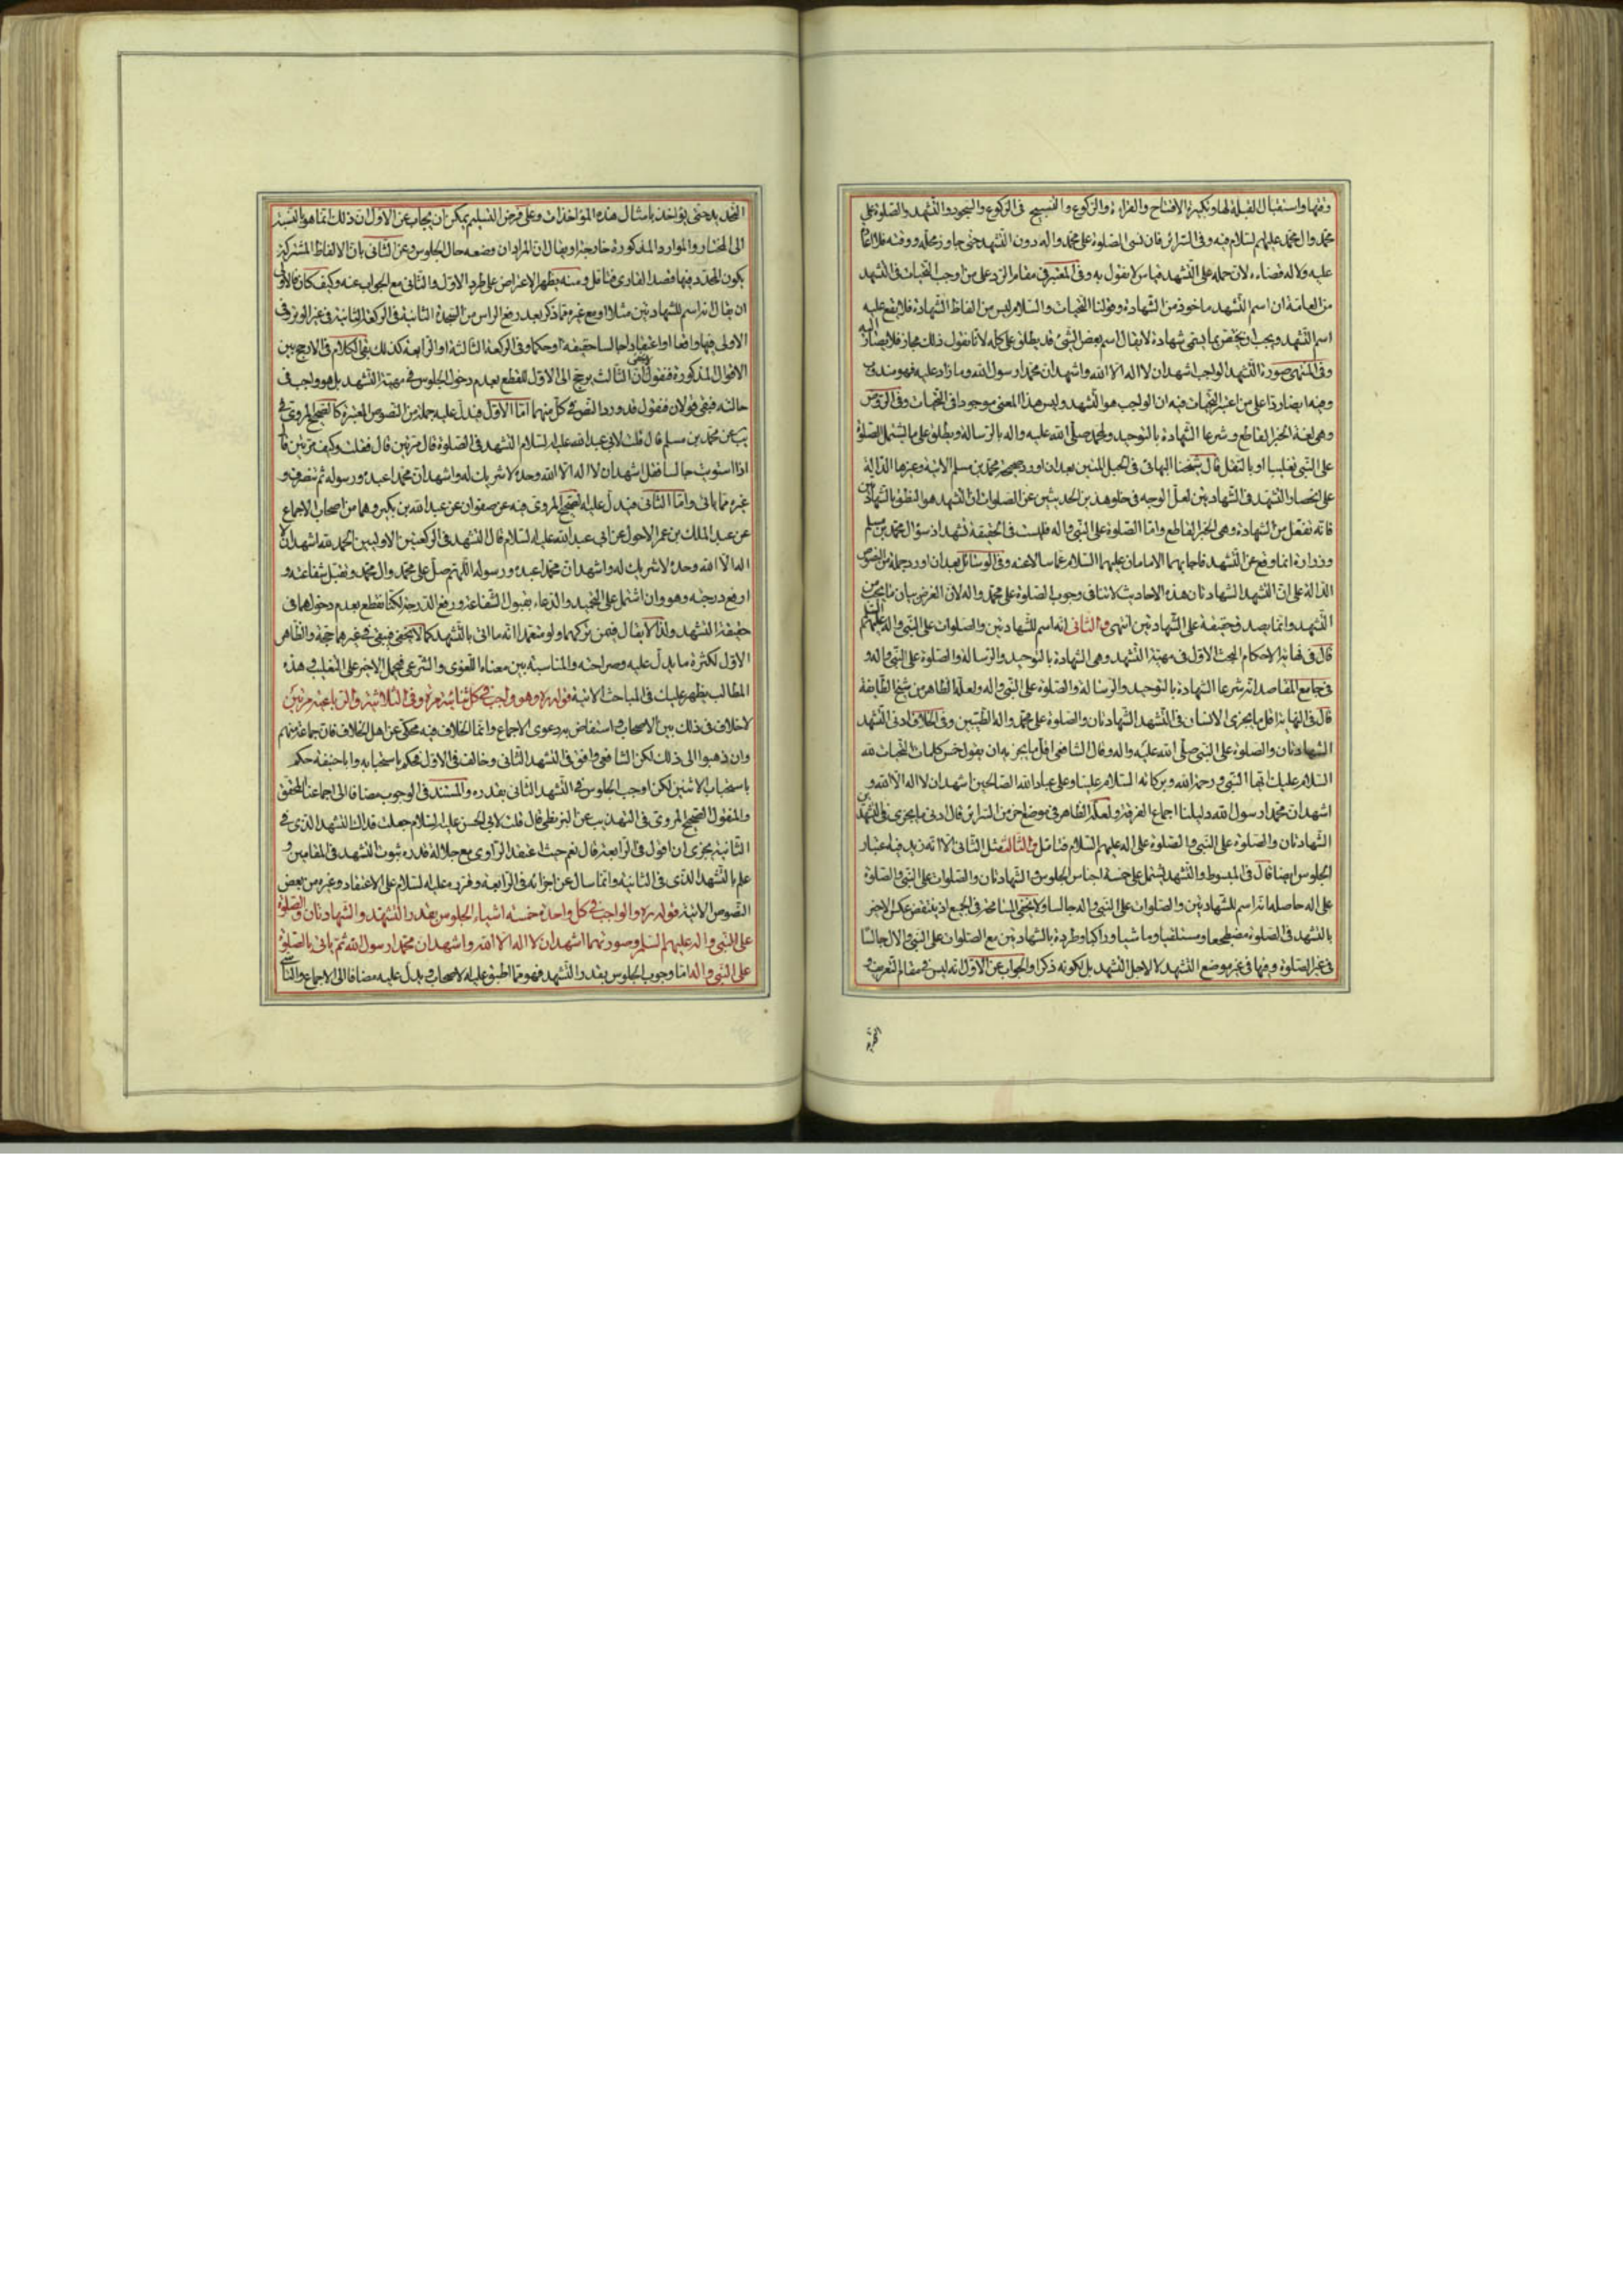 وقتها واستقبال القبلة لها وتكبيرة الافتتاح والقراءة والركوع والتسبيح فى الركوع والسجود والتشهد والصلوة على
محمد وال محمد عليهم السلام فيه وفى السرائر فان نسى الصلوة على محمد واله دون التشهد حتى جاوز محله ووقته فلا اعادة
عليه ولا له قضاءه لان حمله على التشهد قياس لا نقول به وفى المعتبر فى مقام الرد على من اوجب التحيات فى التشهد
من العامة ان اسم التشهد ماخوذ من الشهادة وقولنا التحيات والسلام ليس من الفاظ الشهادة فلا يقع عليه
اسم التشهد ويجب ان يختص بما يسمى شهادة لا يقال اسم بعض الشئ قد يطلق على كله لانا نقول ذلك مجاز فلا يصار اليه
وفى المنتهى صورة التشهد الواجب اشهد ان لا اله الا الله واشهد ان محمدا رسول الله وما زاد عليه فهو مندوب
وفيه ايضا ردا على من اعتبر التحيات فيه ان الواجب هو التشهد وليس هذا المعنى موجودا فى التحيات وفى الروض
وهى لغة الخبر القاطع وشرعا الشهادة بالتوحيد ولمحمد صلى الله عليه واله بالرسالة ويطلق على ما يشتمل الصلوة
على النبى تغليبا او بالنقل قال شيخنا البهائى فى الحبل المتين بعد ان اورد صحيحة محمد بن مسلم الاتية وغيرها الدالة
على انحصار التشهد فى الشهادتين لعل الوجه فى خلو هذين الحديثين عن الصلوات ان التشهد هو النطق بالشهادتين
فانه تفعل من الشهادة وهى الخبر القاطع واما الصلوة على النبى واله فليست فى الحقيقة تشهدا وسؤال محمد بن مسلم
وزرارة انما وقع عن التشهد فاجابهما الامامان عليهما السلام عما سالا عنه وفى الوسائل بعد ان اورد جملة من النصوص
الدالة على ان التشهد الشهادتان هذه الاحاديث لا تنافى وجوب الصلوة على محمد واله لان الغرض بيان ما يجب من
التشهد وانما يصدق حقيقة على الشهادتين انتهى والثانى انه اسم للشهادتين والصلوات على النبى واله عليهم السلم
قال فى نهاية الاحكام البحث الاول فى مهية التشهد وهى الشهادة بالتوحيد والرسالة والصلوة على النبى واله و
فى جامع المقاصد انه شرعا الشهادة بالتوحيد والرسالة والصلوة على النبى واله ولعله الظاهر من شيخ الطايفة
قال فى النهاية اقل ما يجزى الانسان فى التشهد الشهادتان والصلوة على محمد واله الطيبين وفى الخلاف ادنى التشهد
الشهادتان والصلوة على النبى صلى الله عليه واله وقال الشافعى اقل ما يجزيه ان يقول خمس كلمات التحيات لله
السلام عليك ايها النبى ورحمة الله وبركاته السلام علينا وعلى عباد الله الصالحين اشهد ان لا اله الا الله و
اشهد ان محمدا رسول الله دليلنا اجماع الفرقة ولعله الظاهر فى موضع اخر من السرائر قال ادنى ما يجزى فى التشهدين
الشهادتان والصلوة على النبى والصلوة على اله عليهم السلام فتامل والثالث مثل الثانى الا انه زيد فيه اعتبار
الجلوس ايضا قال فى المبسوط والتشهد يشتمل على خمسة اجناس الجلوس والشهادتان والصلوات على النبى والصلوة
على اله حاصله انه اسم للشهادتين والصلوات على النبى واله جالسا ولا يخفى المسامحة فى الجميع اذ ينتقض عكس الاخير
بالتشهد فى الصلوة مضطجعا ومستلقيا وماشيا وراكبا وطرده بالشهادتين مع الصلوات على النبى والال جالسا
فى غير الصلوة وفيها فى غير موضع التشهد لا لاجل التشهد بل لكونه ذكرا والجواب عن الاول انه ليس فى مقام التعريف و
التحديد حتى يؤاخذ بامثال هذه المؤاخذات وعلى فرض التسليم يمكن ان يجاب عن الاول ان ذلك انما هو بالنسبة
الى المختار والموارد المذكورة خارجة او يقال ان المراد ان وضعه حال الجلوس وعن الثانى بان الالفاظ المشتركة
يكون المحدد فيها قصد القارى فتامل ومنه يظهر الاعتراض على طرد الاول والثانى مع الجواب عنه وكيف كان فالاولى
ان يقال انه اسم للشهادتين مثلا او مع غيره مما ذكر بعد رفع الراس من السجدة الثانية فى الركعة الثانية فى غير الوتر وفى
الاولى فيها واقعا او اعتقادا جالسا حقيقة او حكما وفى الركعة الثالثة او الرابعة كذلك بقى الكلام فى الارجح بين
الاقوال المذكورة فنقول ان الثالث يرجع الى الاول للقطع بعدم دخول الجلوس فى مهية التشهد بل هو واجب فى
حالته فبقى قولان فنقول قد ورد النصوص فى كل منهما اما الاول فيدل عليه جملة من النصوص المعتبرة كالصحيح المروى فى
يب عن محمد بن مسلم قال قلت لابى عبد الله عليه السلام التشهد فى الصلوة قال مرتين قال فقلت وكيف مرتين قال
اذا استويت جالسا فقل اشهد ان لا اله الا الله وحده لا شريك له واشهد ان محمدا عبده ورسوله ثم تنصرف و
غيره مما ياتى واما الثانى فيدل عليه الصحيح المروى فيه عن صفوان عن عبد الله بن بكير وهما من اصحاب الاجماع
عن عبد الملك بن عمرو الاحول عن ابى عبد الله عليه السلام قال التشهد فى الركعتين الاوليين الحمد لله اشهد ان لا
اله الا الله وحده لا شريك له واشهد ان محمدا عبده ورسوله اللهم صل على محمد وال محمد وتقبل شفاعته و
ارفع درجته وهو وان اشتمل على التحميد والدعاء بقبول الشفاعة ورفع الدرجة لكنا نقطع بعدم دخولهما فى
حقيقة التشهد ولذا لا يقال فيمن تركهما ولو متعمدا انه ما اتى بالتشهد كما لا يخفى فيبقى فى غيرهما حجة والظاهر
الاول لكثرة ما يدل عليه وصراحته والمناسبة بين معناه اللغوى والشرعى فيحمل الاخير على التغليب فى هذه
المطالب يظهر عليك فى المباحث الاتية قوله ره وهو واجب فى كل ثنائية مرة وفى الثلاثية والرباعية مرتين
لا خلاف فى ذلك بين الاصحاب واستفاض به دعوى الاجماع وانما الخلاف فيه محكى عن اهل الخلاف فان جماعة منهم
وان ذهبوا الى ذلك لكن الشافعى وافق فى التشهد الثانى وخالف فى الاول فحكم باستحبابه وابا حنيفة حكم
باستحباب الاثنين لكن اوجب الجلوس فى التشهد الثانى بقدره والمستند فى الوجوب مضافا الى اجماعنا المحقق
والمنقول الصحيح المروى فى التهذيب عن البزنطى قال قلت لابى الحسن عليه السلام جعلت فداك التشهد الذى فى
الثانية يجزى ان اقول فى الرابعة قال نعم حيث اعتقد الراوى مع جلالة قدره ثبوت التشهد فى المقامين و
علم بالتشهد الذى فى الثانية وانما سال عن اجزائه فى الرابعة وقرره عليه السلام على الاعتقاد وغيره من بعض
النصوص الاتية قوله ره والواجب فى كل واحدة خمسة اشياء الجلوس بقدر التشهد والشهادتان والصلوة
على النبى واله عليهم السلم وصورتهما اشهد ان لا اله الا الله واشهد ان محمدا رسول الله ثم ياتى بالصلوة
على النبى واله اما وجوب الجلوس بقدر التشهد فهو مما اطبق عليه الاصحاب ويدل عليه مضافا الى الاجماع والتاسى